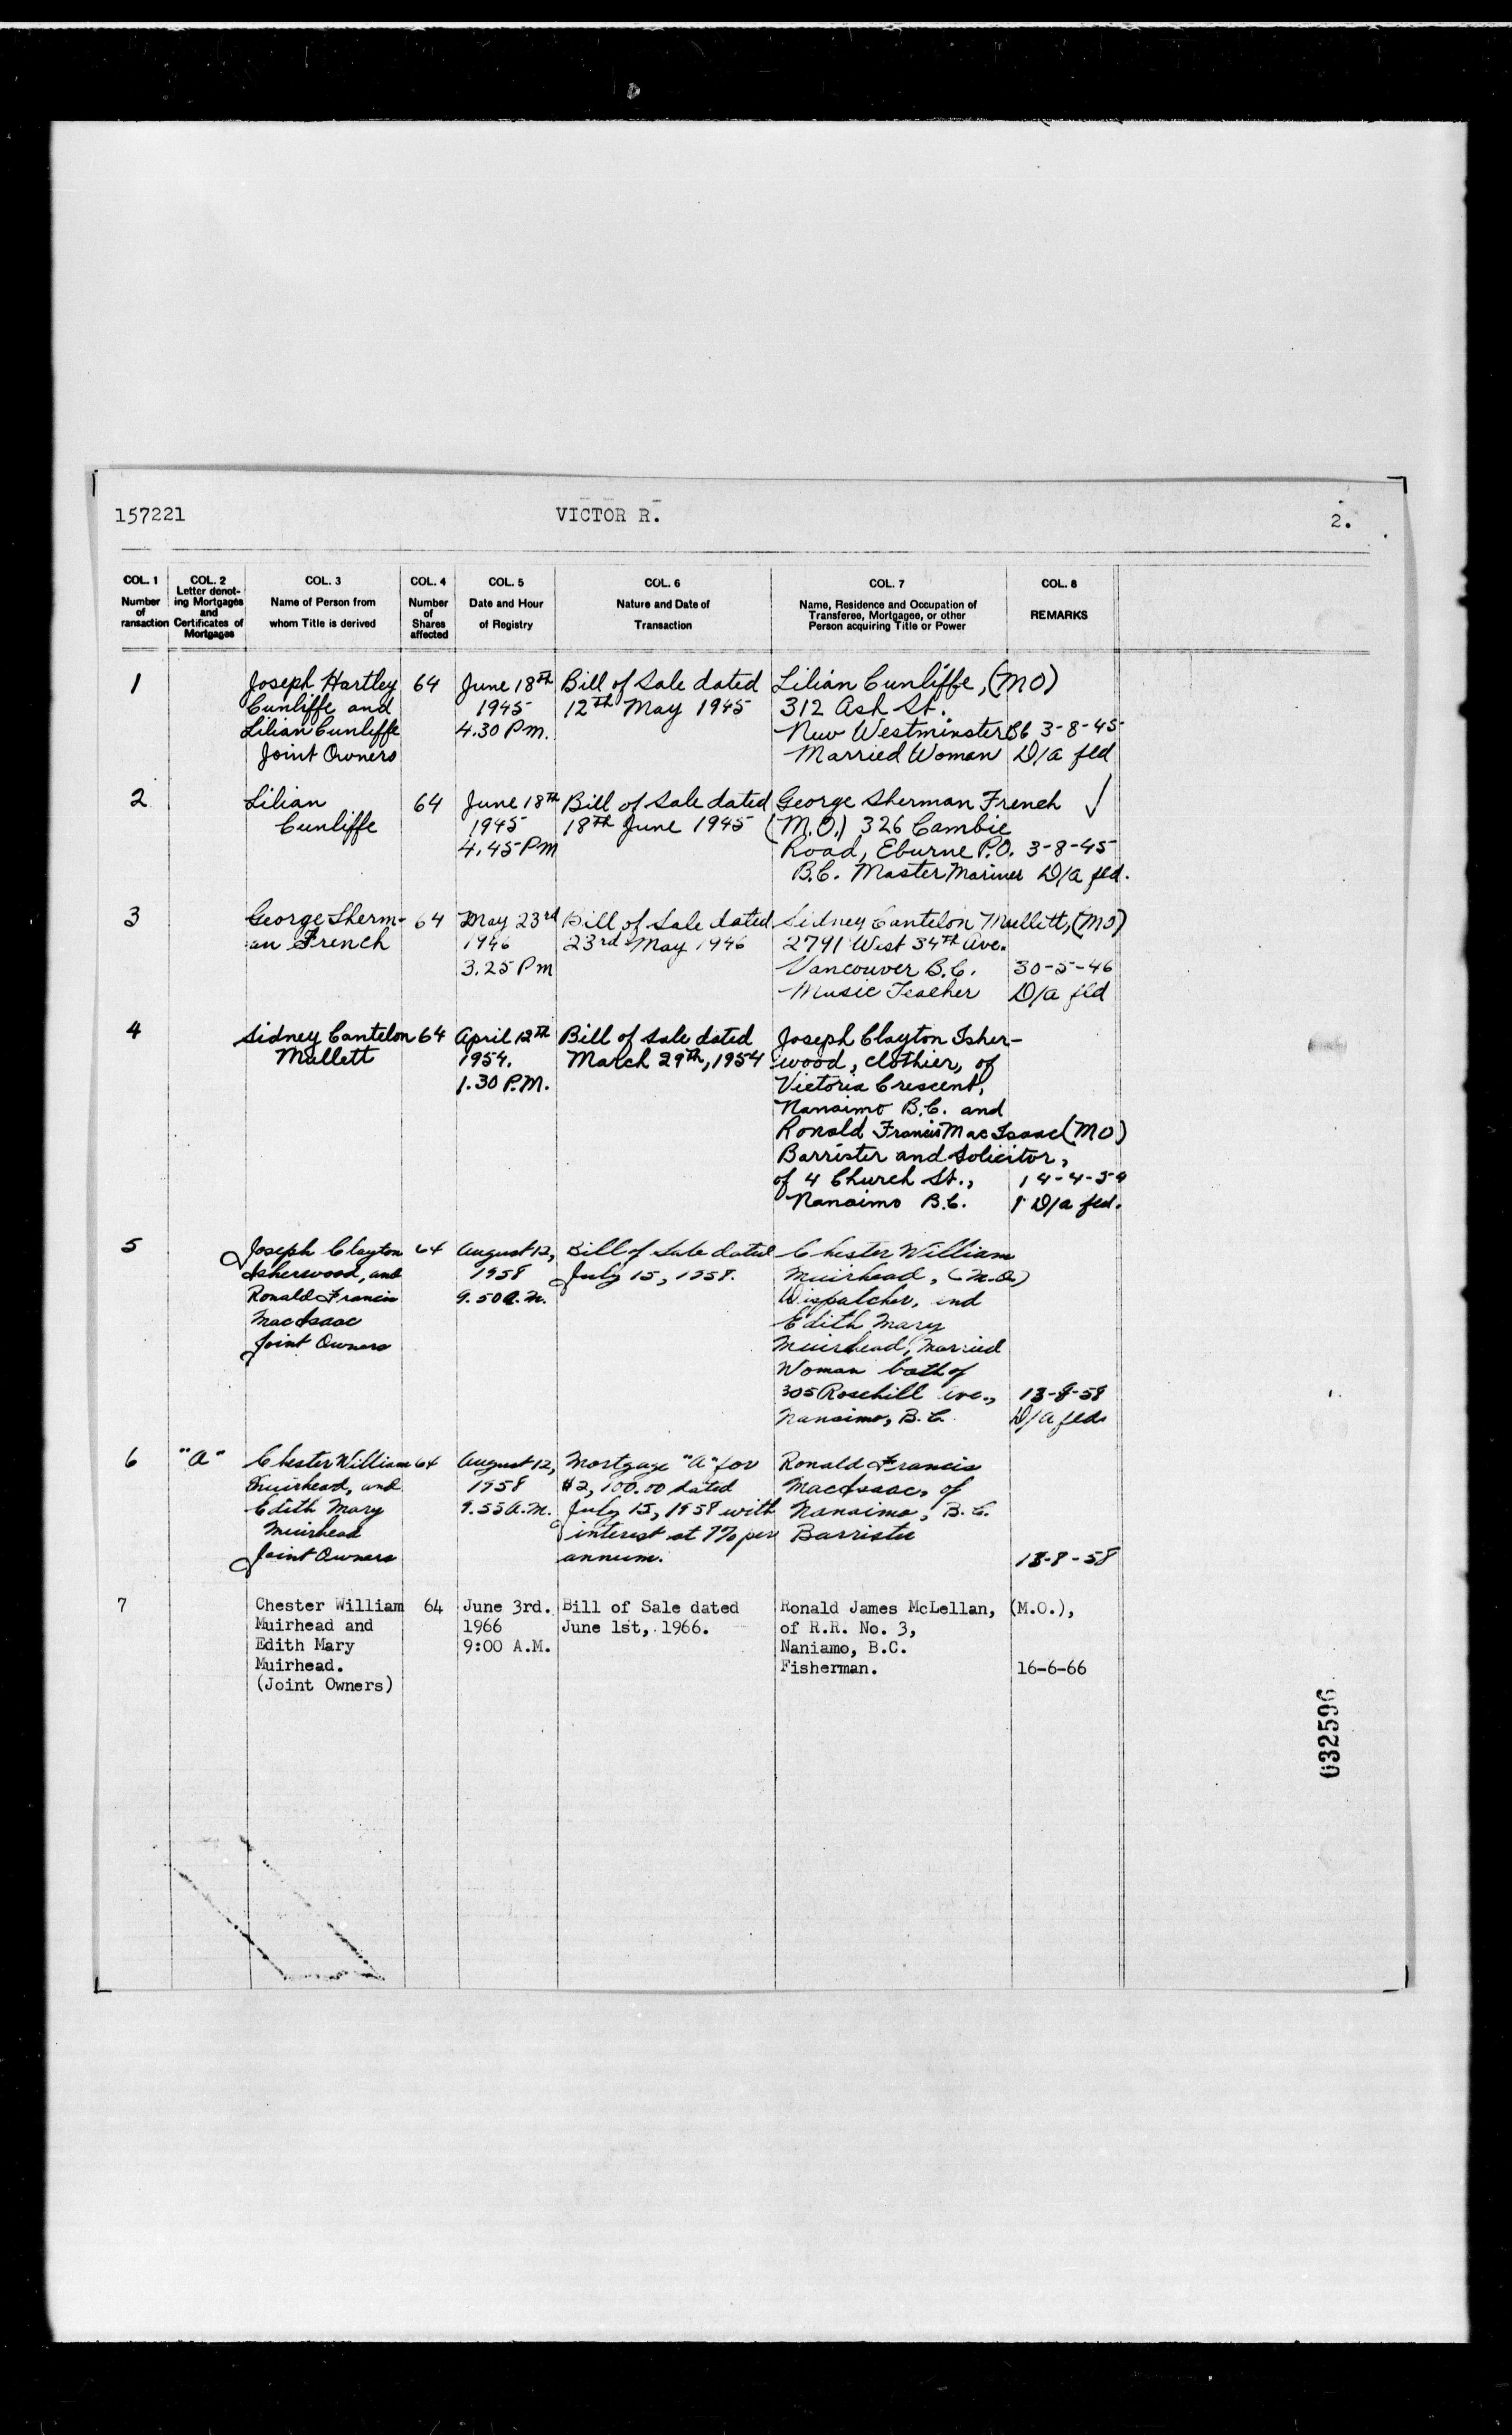 157221 VICTOR R. 2.
COL. 1 COL. 2 COL. 3 COL. 4 COL. 5 COL. 6 COL. 7 COL. 8
Number of ransaction
Letter denot-
ing Mortgages
and
Certificates of
Mortgages
Name of Person from
whom Title is derived
Number
of
Shares
affected
Date and Hour
of Registry
Nature and Date of
Transaction
Name, Residence and Occupation of
Transferee, Mortgagee, or other
Person acquiring Title or Power
REMARKS
1 Joseph Hartley 64 June 18th Bill of Sale dated Lilian Cunliffe, (MO)
Cunliffe and 1945 12th May 1945 312 Ash St.
Lilian Cunliffe 4.30 P.m. New Westminster BC 3-8-45
Joint Owners Married Woman D/a fld
2 Lilian 64 June 18th Bill of Sale dated George Sherman French ✓
Cunliffe 1945 18th June 1945 (M.O.) 326 Cambie
4.45 PM Road, Eburne P.O. 3-8-45
B.C. Master Mariner D/a fld.
3 George Sherm- 64 May 23rd Bill of Sale dated Sidney Cantelon Mullett, (MO)
an French 1946 23rd May 1946 2791 West 34th Ave.
3.25 Pm Vancouver B.C. 30-5-46
Music Teacher D/a fld
4 Sidney Cantelon 64 April 12th Bill of Sale dated Joseph Clayton Isher-
Mullett 1954. March 29th, 1954 wood, clothier, of
1.30 P.M. Victoria Crescent,
Nanaimo B.C. and
Ronald Francis MacIsaac (MO)
Barrister and Solicitor,
of 4 Church St., 14-4-54
Nanaimo B.C. D/a fld.
5 Joseph Clayton 64 August 12, Bill of Sale dated Chester William
Isherwood, and 1958 July 15, 1958. Muirhead, (M.O.)
Ronald Francis 9.50 a.m. Dispatcher, and
MacIsaac Edith Mary
Joint Owners Muirhead, Married
Woman both of
305 Rosehill ave., 13-8-58
Nanaimo, B.C. D/a fld.
6 "A" Chester William 64 August 12, Mortgage "A" for Ronald Francis
Muirhead, and 1958 $2,100.00 dated MacIsaac, of
Edith Mary 9.55 a.m. July 15, 1958 with Nanaimo, B.C.
Muirhead interest at 7% per Barrister
Joint Owners annum. 13-8-58
7 Chester William 64 June 3rd. Bill of Sale dated Ronald James McLellan, (M.O.),
Muirhead and 1966 June 1st, 1966. of R.R. No. 3,
Edith Mary 9:00 A.M. Naniamo, B.C.
Muirhead. Fisherman. 16-6-66
(Joint Owners)
032596